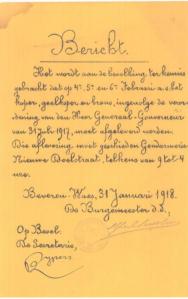 Bericht.
Het wordt aan de bevolking ter kennis
gebracht dat op 4ᵉ, 5ᵉ en 6ᵉ Februari a.s. het
koper, geelkoper en brons, ingevolge de veror-
dening van den Heer Generaal-Gouverneur
van 31 Juli 1917, moet afgeleverd worden.
De aflevering moet geschieden Gendarmerie
Nieuwe Doelstraat, telkens van 9 tot 4
ure.
Beveren-Waes, 31 Januari 1918.
De Burgemeester d.d.,
Op Bevel:
De Secretaris,